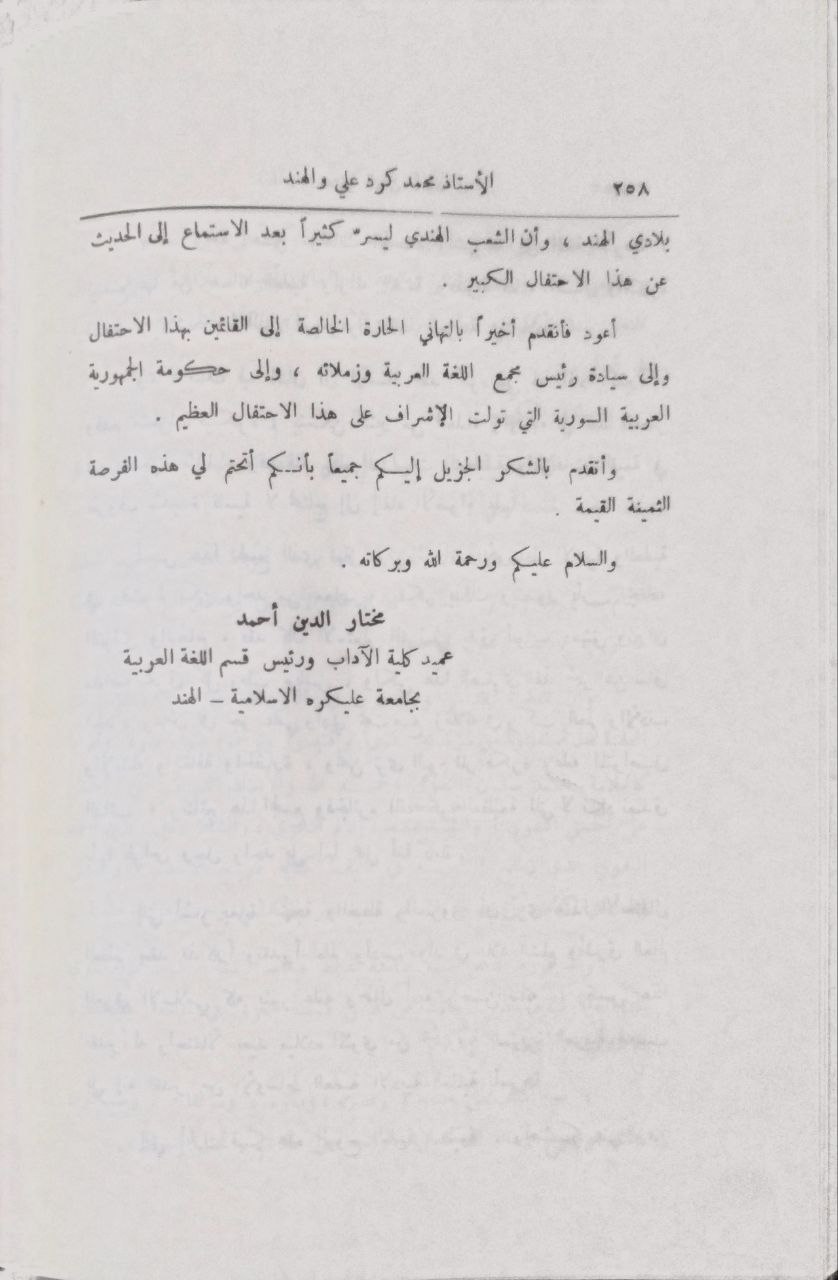 ٢٥٨ الأستاذ محمد كرد علي والهند
بلادي الهند ، وأن الشعب الهندي ليسرّ كثيراً بعد الاستماع إلى الحديث
عن هذا الاحتفال الكبير .
أعود فأتقدم أخيراً بالتهاني الحارة الخالصة إلى القائمين بهذا الاحتفال
وإلى سيادة رئيس مجمع اللغة العربية وزملائه ، وإلى حكومة الجمهورية
العربية السورية التي تولت الإشراف على هذا الاحتفال العظيم .
وأتقدم بالشكر الجزيل إليكم جميعاً بأنكم أتحتم لي هذه الفرصة
الثمينة القيمة .
والسلام عليكم ورحمة الله وبركاته .
مختار الدين أحمد
عميد كلية الآداب ورئيس قسم اللغة العربية
بجامعة عليكره الاسلامية ـ الهند